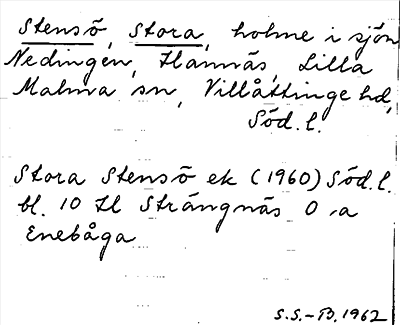 Stensö, Stora, holme i sjön
Nedingen, Hannäs, Lilla
Malma sn, Villåttinge hd,
Söd. l.
Stora Stensö ek (1960) Söd. l.
bl. 10 H Strängnäs O a
Enebåga
S.S.-B. 1962